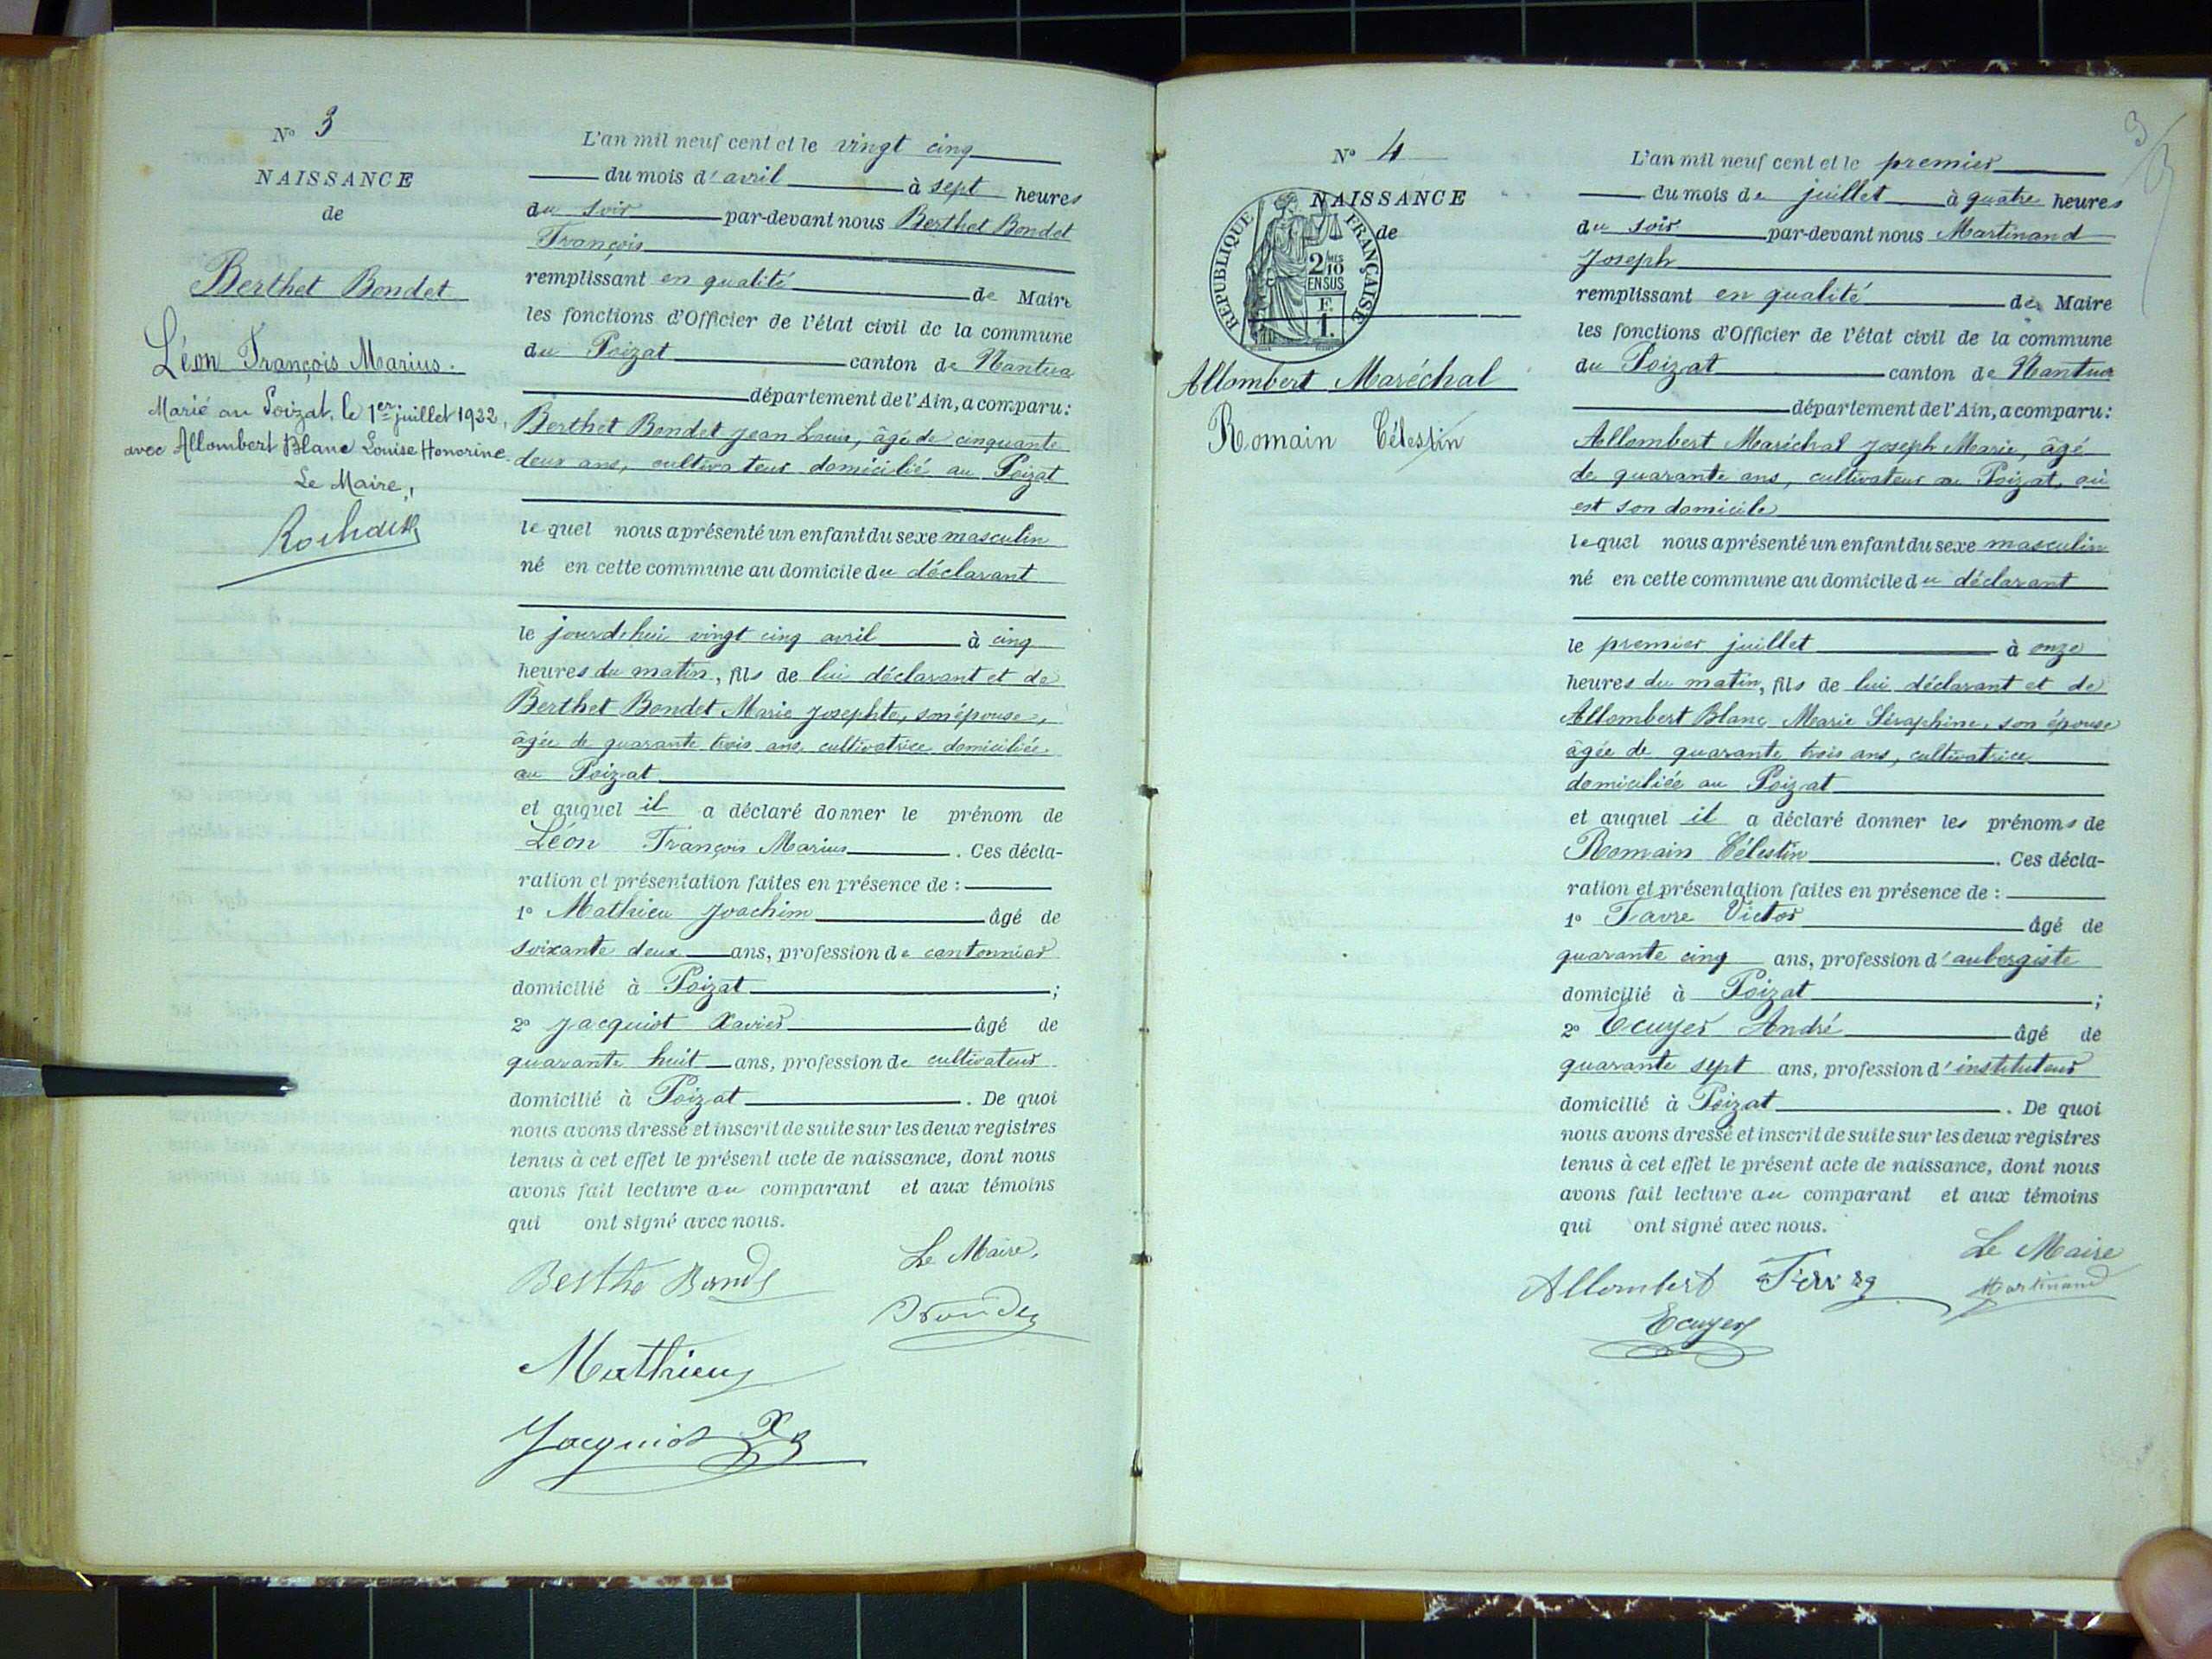 N° 3
NAISSANCE
de
Berthet Bondet
Léon François Marius.
Marié au Poizat, le 1er juillet 1922,
avec Allombert Blanc Louise Honorine.
Le Maire,
L'an mil neuf cent et le vingt cinq
du mois d'avril à sept heures
du soir par-devant nous Berthet Bondet
François
remplissant en qualité de Maire
les fonctions d'Officier de l'état civil de la commune
du Poizat canton de Nantua
département de l'Ain, a comparu:
Berthet Bondet Jean Louis, âgé de cinquante
deux ans, cultivateur domicilié au Poizat
lequel nous a présenté un enfant du sexe masculin
né en cette commune au domicile du déclarant
le jourdehui vingt cinq avril à cinq
heures du matin, fils de lui déclarant et de
Berthet Bondet Marie Josephte, son épouse,
âgée de quarante trois ans, cultivatrice domiciliée
au Poizat
et auquel il a déclaré donner le prénom de
Léon François Marius. Ces décla-
ration et présentation faites en présence de :
1° Mathieu Joachim âgé de
soixante deux ans, profession de cantonnier
domicilié à Poizat ;
2° Jacquiot Xavier âgé de
quarante huit ans, profession de cultivateur
domicilié à Poizat. De quoi
nous avons dressé et inscrit de suite sur les deux registres
tenus à cet effet le présent acte de naissance, dont nous
avons fait lecture au comparant et aux témoins
qui ont signé avec nous.
Le Maire,
Berthe Bonde
Bondez
Mathieu
Jacquiot X
3
N° 4
NAISSANCE
de
REPUBLIQUE FRANÇAISE
2/10 MES
EN SUS
F.
1.
Allombert Maréchal
Romain Célestin
L'an mil neuf cent et le premier
du mois de juillet à quatre heures
du soir par-devant nous Martinand
Joseph
remplissant en qualité de Maire
les fonctions d'Officier de l'état civil de la commune
du Poizat canton de Nantua
département de l'Ain, a comparu:
Allombert Maréchal Joseph Marie, âgé
de quarante ans, cultivateur au Poizat, où
est son domicile
lequel nous a présenté un enfant du sexe masculin
né en cette commune au domicile du déclarant
le premier juillet à onze
heures du matin, fils de lui déclarant et de
Allombert Blanc Marie Séraphine, son épouse
âgée de quarante trois ans, cultivatrice
domiciliée au Poizat
et auquel il a déclaré donner les prénoms de
Romain Célestin. Ces décla-
ration et présentation faites en présence de :
1° Favre Victor âgé de
quarante cinq ans, profession d'aubergiste
domicilié à Poizat ;
2° Ecuyer André âgé de
quarante sept ans, profession d'instituteur
domicilié à Poizat. De quoi
nous avons dressé et inscrit de suite sur les deux registres
tenus à cet effet le présent acte de naissance, dont nous
avons fait lecture au comparant et aux témoins
qui ont signé avec nous.
Le Maire
Allombert
Martinand
Ecuyer